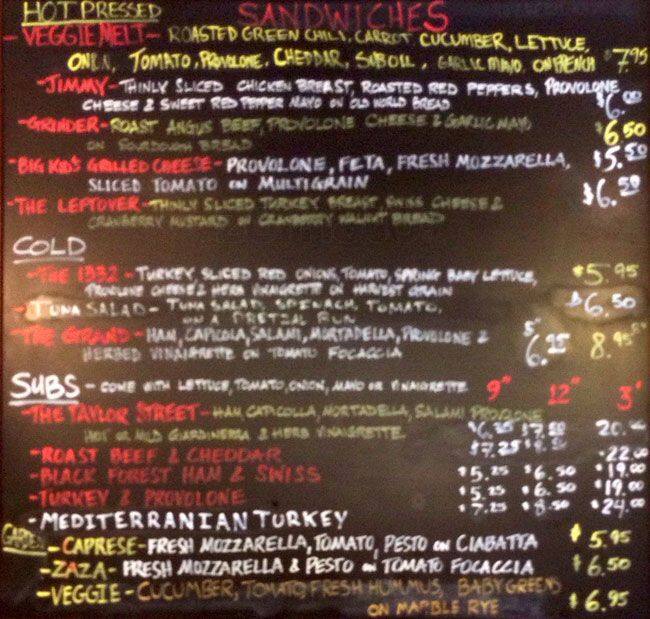 HOT PRESSED SANDWICHES
- VEGGIE MELT - ROASTED GREEN CHILI, CARROT CUCUMBER, LETTUCE,
TOMATO, PROVOLONE, CHEDDAR, GARLIC MAYO, ON FRENCH $7.95
- JIMMY - THINLY SLICED CHICKEN BREAST, ROASTED RED PEPPERS, PROVOLONE
CHEESE & SWEET RED PEPPER MAYO ON OLD WORLD BREAD $6.00
- GRINDER - ROAST ANGUS BEEF, PROVOLONE CHEESE & GARLIC MAYO
ON SOURDOUGH BREAD $6.50
- BIG KID'S GRILLED CHEESE - PROVOLONE, FETA, FRESH MOZZARELLA, $5.50
SLICED TOMATO ON MULTIGRAIN
- THE LEFTOVER - THINLY SLICED TURKEY BREAST, SWISS CHEESE & $6.50
CRANBERRY MUSTARD ON CRANBERRY WALNUT BREAD
COLD
- THE 1332 - TURKEY, SLICED RED ONIONS, TOMATO, SPRING BABY LETTUCE, $5.95
PROVOLONE CHEESE & HERB VINAIGRETTE ON HARVEST GRAIN
- TUNA SALAD - TUNA SALAD, SPINACH, TOMATO, $6.50
ON A PRETZAL BUN
- THE GRAND - HAM, CAPICOLA, SALAMI, MORTADELLA, PROVOLONE & 6.25 8.95
HERBED VINAIGRETTE ON TOMATO FOCACCIA
SUBS - COME WITH LETTUCE, TOMATO, ONION, MAYO OR VINAIGRETTE 9" 12" 3'
- THE TAYLOR STREET - HAM, CAPICOLLA, MORTADELLA, SALAMI PROVOLONE
HOT OR MILD GIARDINERIA & HERB VINAIGRETTE
- ROAST BEEF & CHEDDAR $22.00
- BLACK FOREST HAM & SWISS $5.25 $6.50 $19.00
- TURKEY & PROVOLONE $5.25 $6.50 $19.00
- MEDITERRANIAN TURKEY $7.25 $8.50 $24.00
GARDEN - CAPRESE - FRESH MOZZARELLA, TOMATO, PESTO ON CIABATTA $5.95
- ZAZA - FRESH MOZZARELLA & PESTO ON TOMATO FOCACCIA $6.50
- VEGGIE - CUCUMBER, TOMATO, FRESH HUMMUS, BABY GREENS
ON MARBLE RYE $6.95